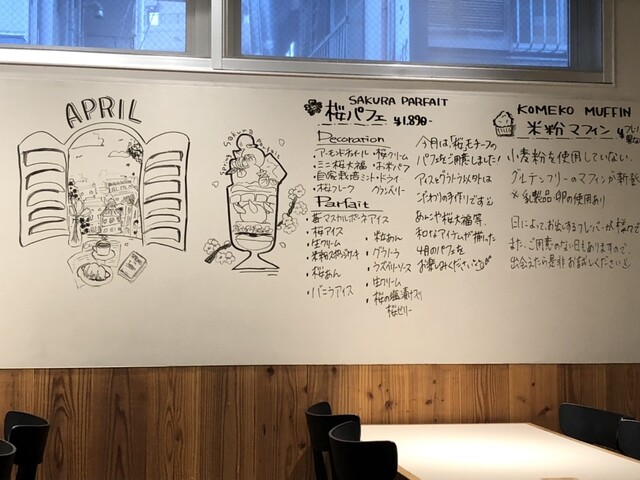 APRIL
Sakura
SAKURA PARFAIT
桜パフェ ¥1,890-
Decoration
・アーモンドチュイル ・桜クリーム
・ミニ桜大福
・自家栽培ミント ・ドライ
・桜フレーク クランベリー
Parfait
苺マスカルポーネアイス
・桜アイス
・生クリーム
・米粉スポンジケーキ
・桜あん
・バニラアイス
・粒あん
・グラノーラ
・生クリーム
・桜の塩漬け入り
桜ゼリー
今月は、「桜」モチーフの
パフェをご用意しました!
アイスとグラノーラ以外は
こだわりの手作りです
あんこや桜大福等、
和なアイテムが揃った
4月のパフェを
お楽しみください
KOMEKO MUFFIN
米粉マフィン
小麦粉を使用していない、
グルテンフリーのマフィンが新
※乳製品・卵の使用あり
日によってお出しするフレーバーが
また、ご用意のない日もありますので、
出会えたら是非お試しください